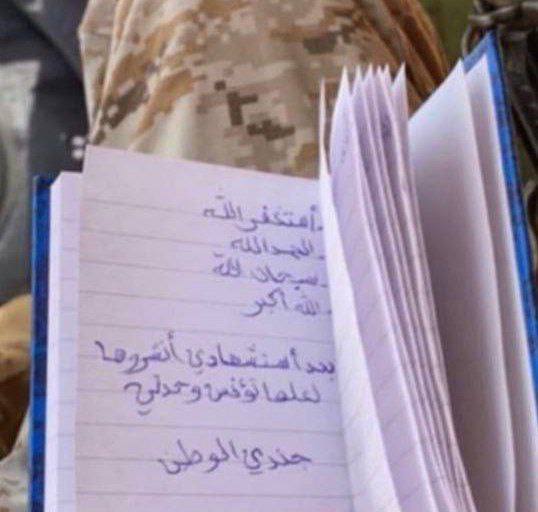 .أستغفر الله
.الحمدالله
.سبحان الله
.الله أكبر
بعد أستشهادي أنشروها
لعلها تؤنس وحدتي
جندي الوطن